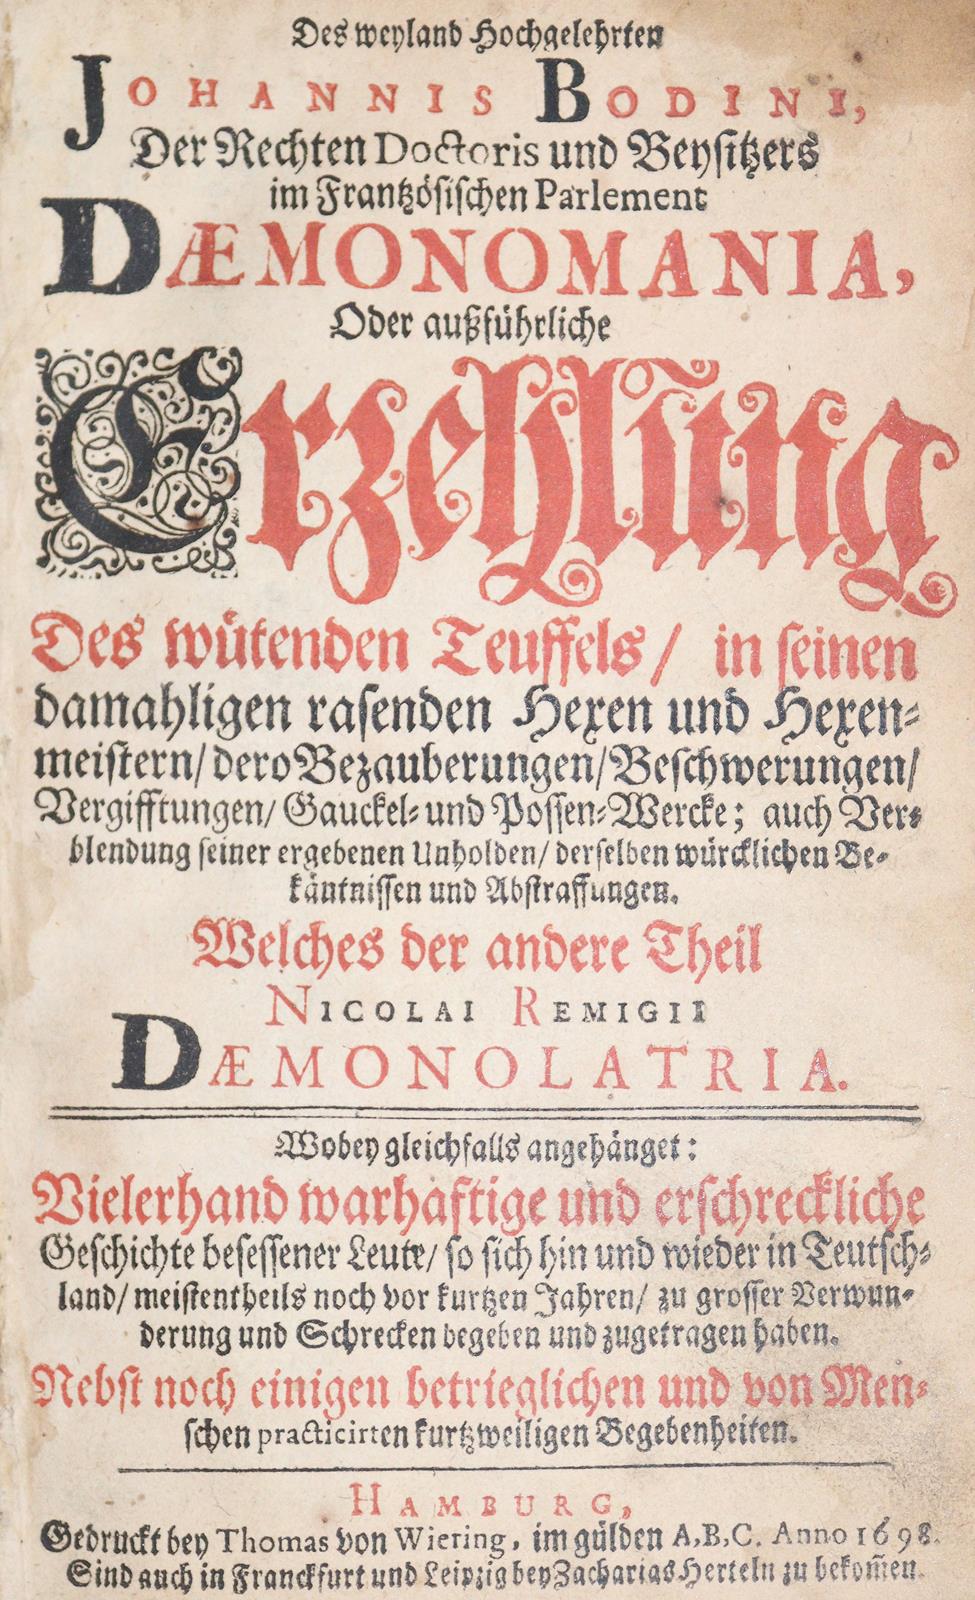 Des weyland Hochgelehrten
JOHANNIS BODINI,
Der Rechten Doctoris und Beysitzers
im Frantzösischen Parlement
DÆMONOMANIA,
Oder außführliche
Erzehlung
Des wütenden Teuffels/ in seinen
damahligen rasenden Hexen und Hexen-
meistern/ dero Bezauberungen/ Beschwerungen/
Vergifftungen/ Gauckel- und Possen-Wercke; auch Ver-
blendung seiner ergebenen Unholden/ derselben würcklichen Be-
käntnissen und Abstraffungen.
Welches der andere Theil
NICOLAI REMIGII
DÆMONOLATRIA.
Wobey gleichfalls angehänget:
Vielerhand warhaftige und erschreckliche
Geschichte besessener Leute/ so sich hin und wieder in Teutsch-
land/ meistentheils noch vor kurtzen Jahren/ zu grosser Verwun-
derung und Schrecken begeben und zugetragen haben.
Nebst noch einigen betrieglichen und von Men-
schen practicirten kurtzweiligen Begebenheiten.
HAMBURG,
Gedruckt bey Thomas von Wiering, im gülden A,B,C. Anno 1698.
Sind auch in Franckfurt und Leipzig bey Zacharias Herteln zu bekom̃en.